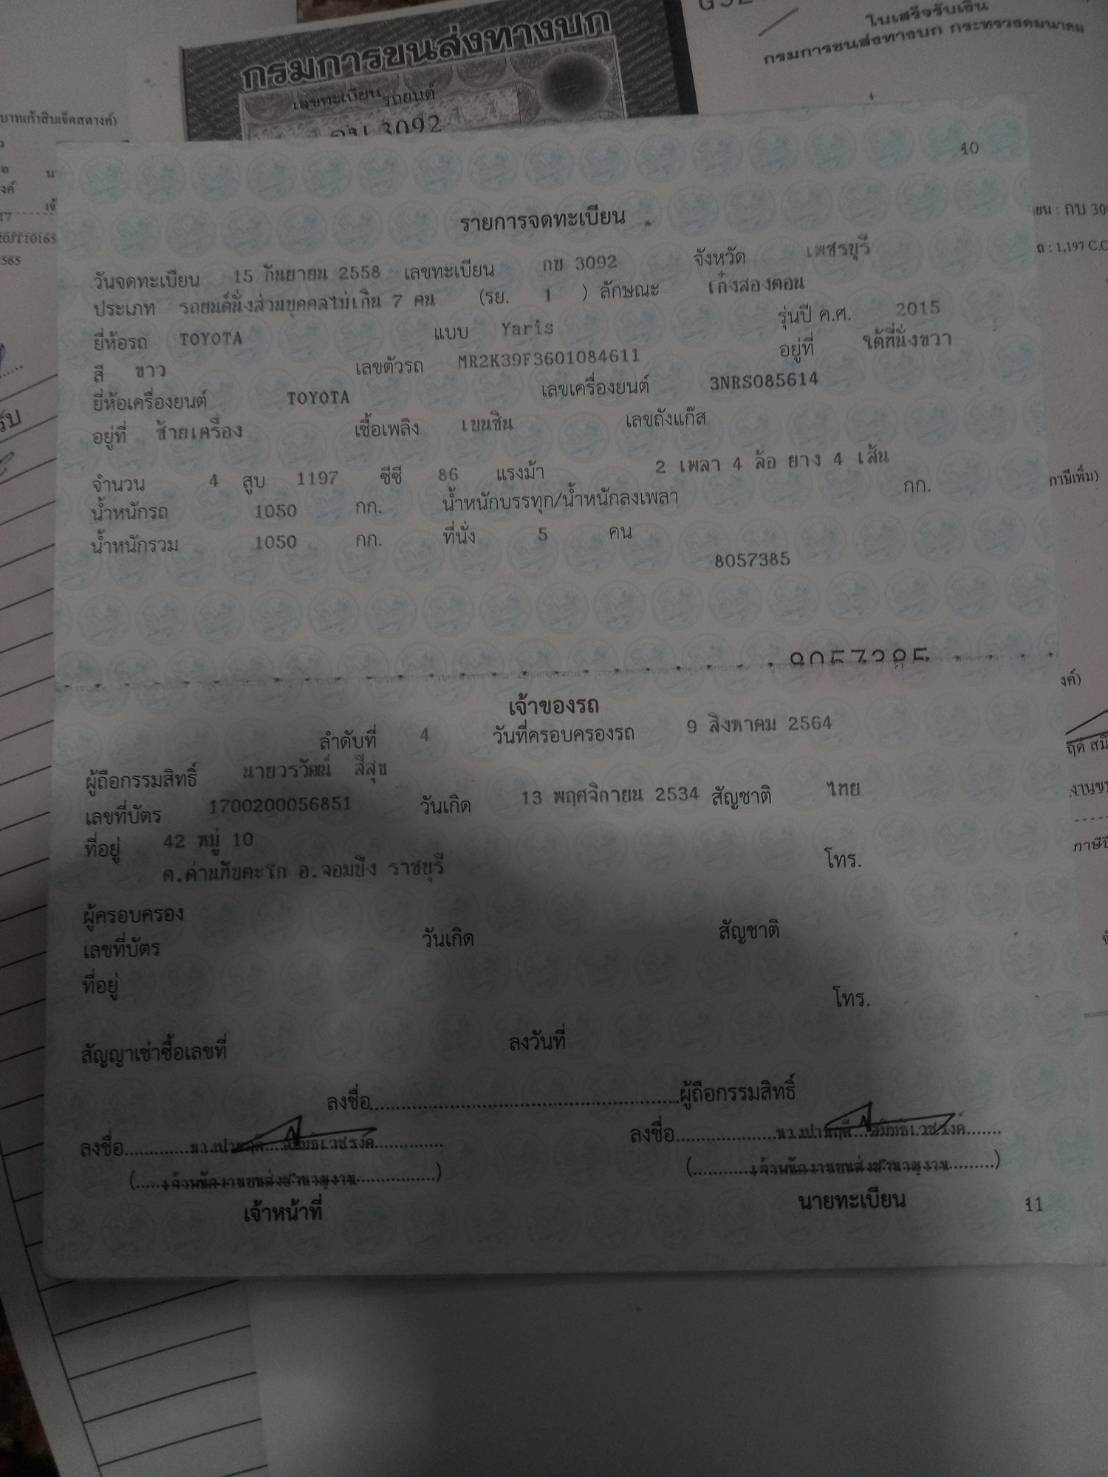 กรมการขนส่งทางบก
เลขทะเบียน รถยนต์
3092
ใบเสร็จรับเงิน
กรมการขนส่งทางบก กระทรวงคมนาคม
บาทเก้าสิบเจ็ดสตางค์)
: กบ 309
: 1,197 C.C
40
รายการจดทะเบียน
วันจดทะเบียน 15 กันยายน 2558 เลขทะเบียน กข 3092 จังหวัด เพชรบุรี
ประเภท รถยนต์นั่งส่วนบุคคลไม่เกิน 7 คน (รย. 1 ) ลักษณะ เก๋งสองตอน
ยี่ห้อรถ TOYOTA แบบ Yaris รุ่นปี ค.ศ. 2015
สี ขาว เลขตัวรถ MR2K39F3601084611 อยู่ที่ ใต้ที่นั่งขวา
ยี่ห้อเครื่องยนต์ TOYOTA เลขเครื่องยนต์ 3NRS085614
อยู่ที่ ซ้ายเครื่อง เชื้อเพลิง เบนซิน เลขถังแก๊ส
จำนวน 4 สูบ 1197 ซีซี 86 แรงม้า 2 เพลา 4 ล้อ ยาง 4 เส้น
น้ำหนักรถ 1050 กก. น้ำหนักบรรทุก/น้ำหนักลงเพลา กก.
น้ำหนักรวม 1050 กก. ที่นั่ง 5 คน
8057385
ภาษีเพิ่ม)
เจ้าของรถ
ลำดับที่ 4 วันที่ครอบครองรถ 9 สิงหาคม 2564
ผู้ถือกรรมสิทธิ์ นายวรวัฒน์ สีสุข
เลขที่บัตร 1700200056851 วันเกิด 13 พฤศจิกายน 2534 สัญชาติ ไทย
ที่อยู่ 42 หมู่ 10
ต.ด่านทับตะโก อ.จอมบึง ราชบุรี โทร.
ผู้ครอบครอง
เลขที่บัตร วันเกิด สัญชาติ
ที่อยู่
โทร.
สัญญาเช่าซื้อเลขที่ ลงวันที่
ลงชื่อ ผู้ถือกรรมสิทธิ์
ลงชื่อ ลงชื่อ
(เจ้าพนักงานขนส่งชำนาญงาน) (เจ้าพนักงานขนส่งชำนาญงาน)
เจ้าหน้าที่ นายทะเบียน
11